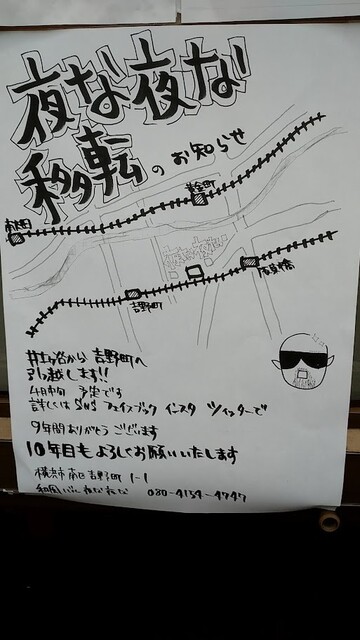 夜な夜な
移転のお知らせ
黄金町
南太田
夜な夜な
吉野町
阪東橋
井土ヶ谷から吉野町へ
引っ越します!!
4月中旬 予定です
詳しくは SNS フェイスブック インスタ ツイッターで
9年間ありがとうございます
10年目もよろしくお願いいたします
横浜市南区吉野町 1-1
和風バル よなよな 080-4154-4747